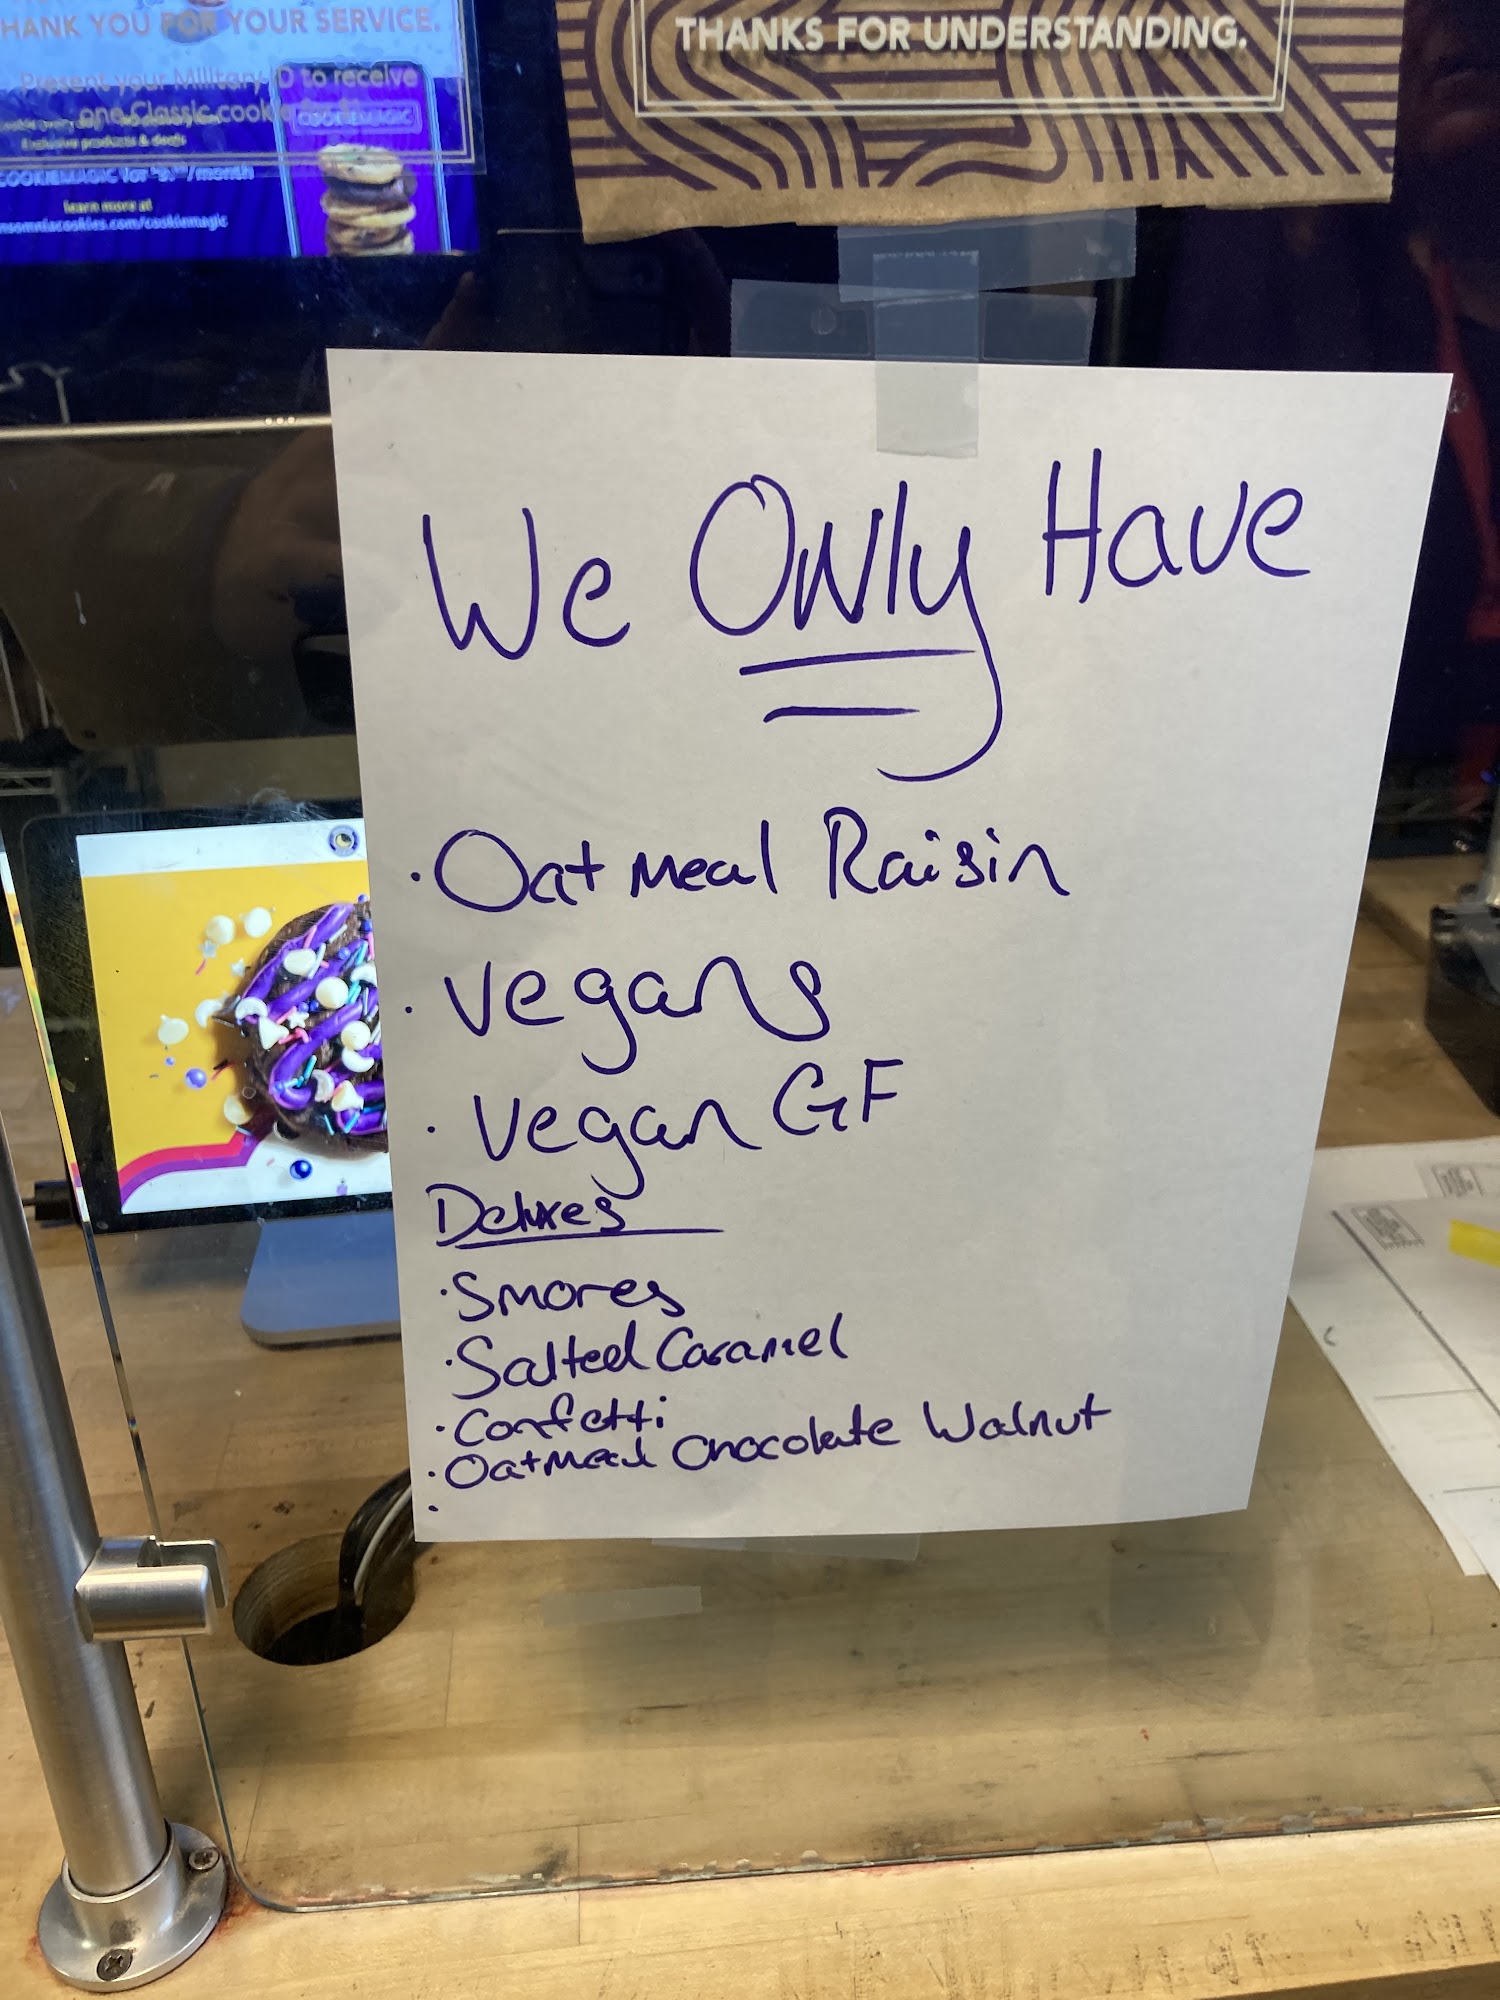 THANK YOU FOR YOUR SERVICE.
Present your Military ID to receive
one Classic cookie
COOKIEMAGIC
Exclusive products & deals
COOKIEMAGIC for /month
learn more at
insomniacookies.com/cookiemagic
THANKS FOR UNDERSTANDING.
We Only Have
· Oatmeal Raisin
· Vegans
· Vegan GF
Deluxes
· Smores
· Salted Caramel
· Confetti
· Oatmeal Chocolate Walnut
·